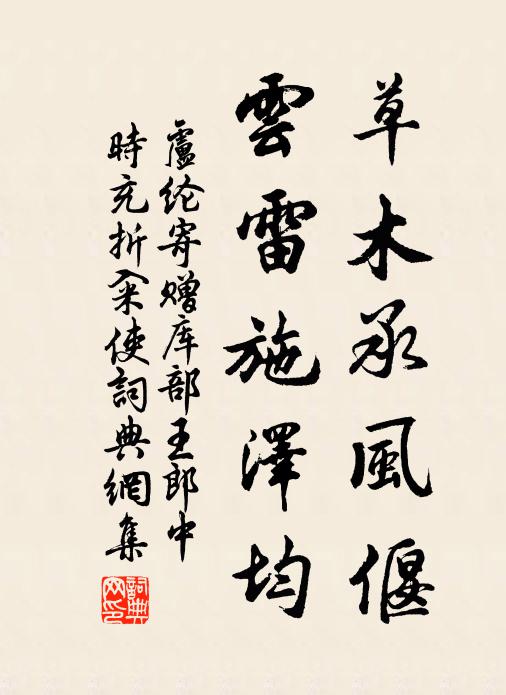 草木承風偃
雲雷施澤均
盧纶寄赠库部王郎中
時充折籴使詞典網集
詞典网印